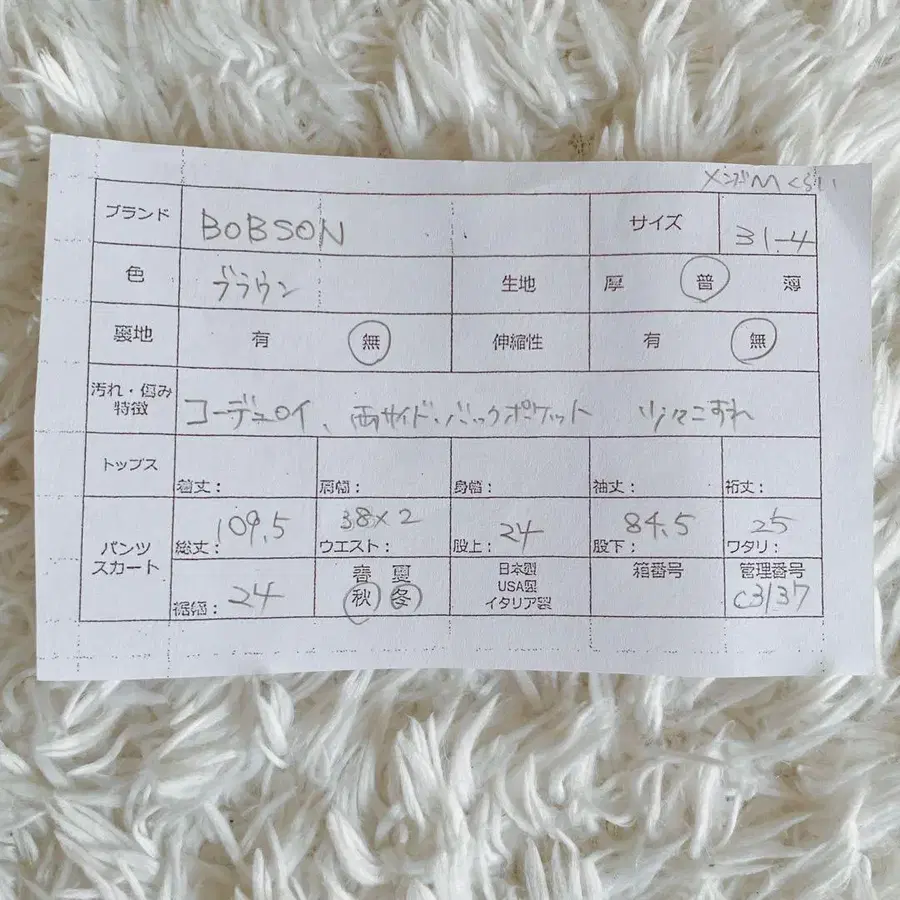 メンズMくらい
ブランド BOBSON サイズ 31-4
色 ブラウン 生地 厚 普 薄
裏地 有 無 伸縮性 有 無
汚れ・傷み
特徴 コーデュロイ、両サイド、バックポケット 少々こすれ
トップス 着丈: 肩幅: 身幅: 袖丈: 裄丈:
パンツ
スカート 総丈: 109.5 ウエスト: 38×2 股上: 24 股下: 84.5 ワタリ: 25
裾幅: 24 春 夏 秋 冬 日本製 USA製 イタリア製 箱番号 管理番号 c3137